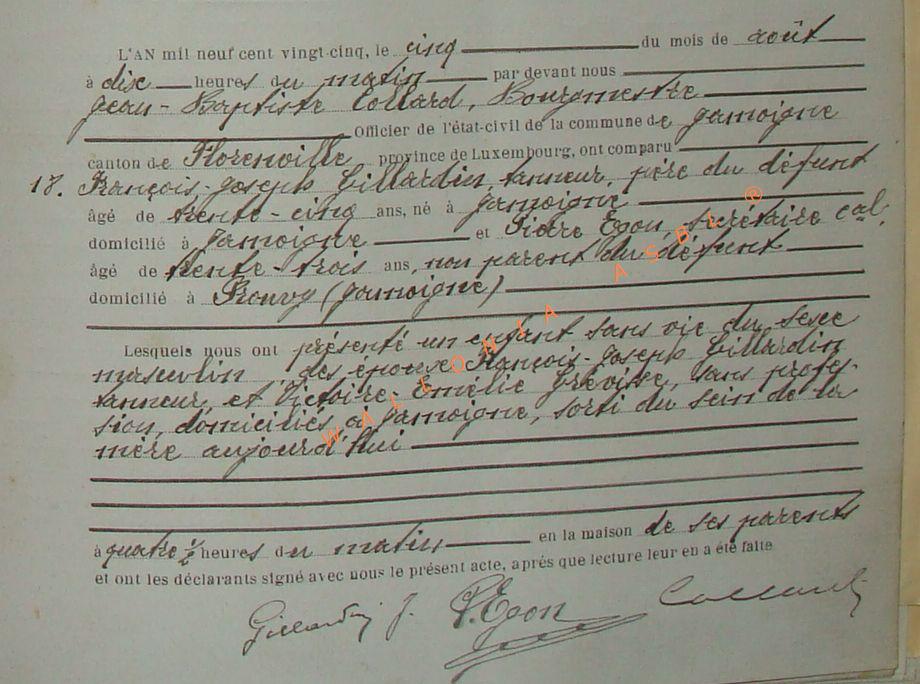 L'AN mil neuf cent vingt-cinq, le cinq du mois de août
à dix heures du matin par devant nous
Jean-Baptiste Collard, Bourgmestre
Officier de l'état-civil de la commune de Jamoigne
canton de Florenville province de Luxembourg, ont comparu
18. François-Joseph Gillardin, tanneur, père du défunt
âgé de trente-cinq ans, né à Jamoigne
domicilié à Jamoigne et Pierre Egon, secrétaire cal,
âgé de trente-trois ans, non parent du défunt
domicilié à Prouvy (Jamoigne)
Lesquels nous ont présenté un enfant sans vie du sexe
masculin des époux François-Joseph Gillardin
tanneur, et Victoire-Emélie Grévisse, sans profes-
sion, domiciliés à Jamoigne, sorti du sein de la
mère aujourd'hui
à quatre 1/2 heures du matin en la maison de ses parents
et ont les déclarants signé avec nous le présent acte, après que lecture leur en a été faite
Gillardin J. P. Egon Collard
WALLONIA ASBL ®